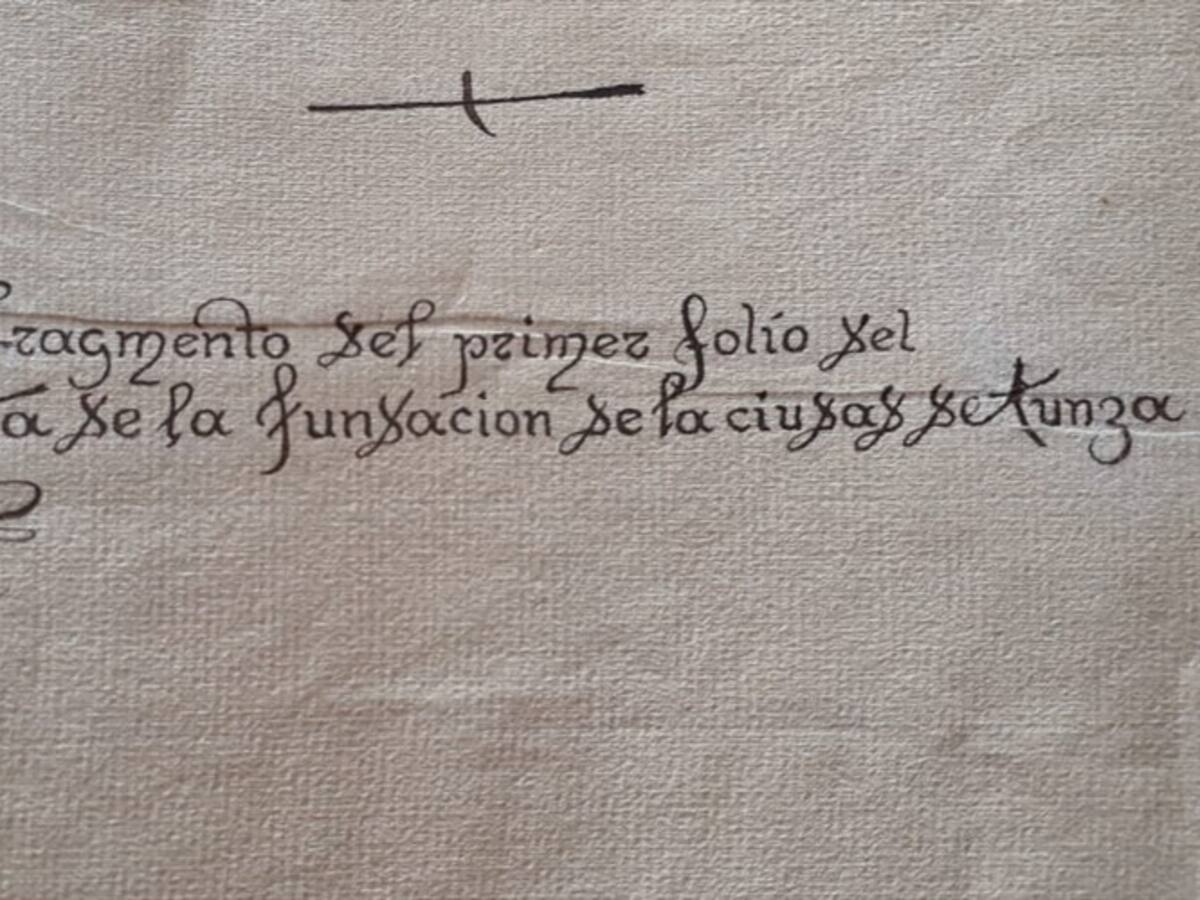 ragmento del primer folio del
a de la fundacion de la ciudad de tunza